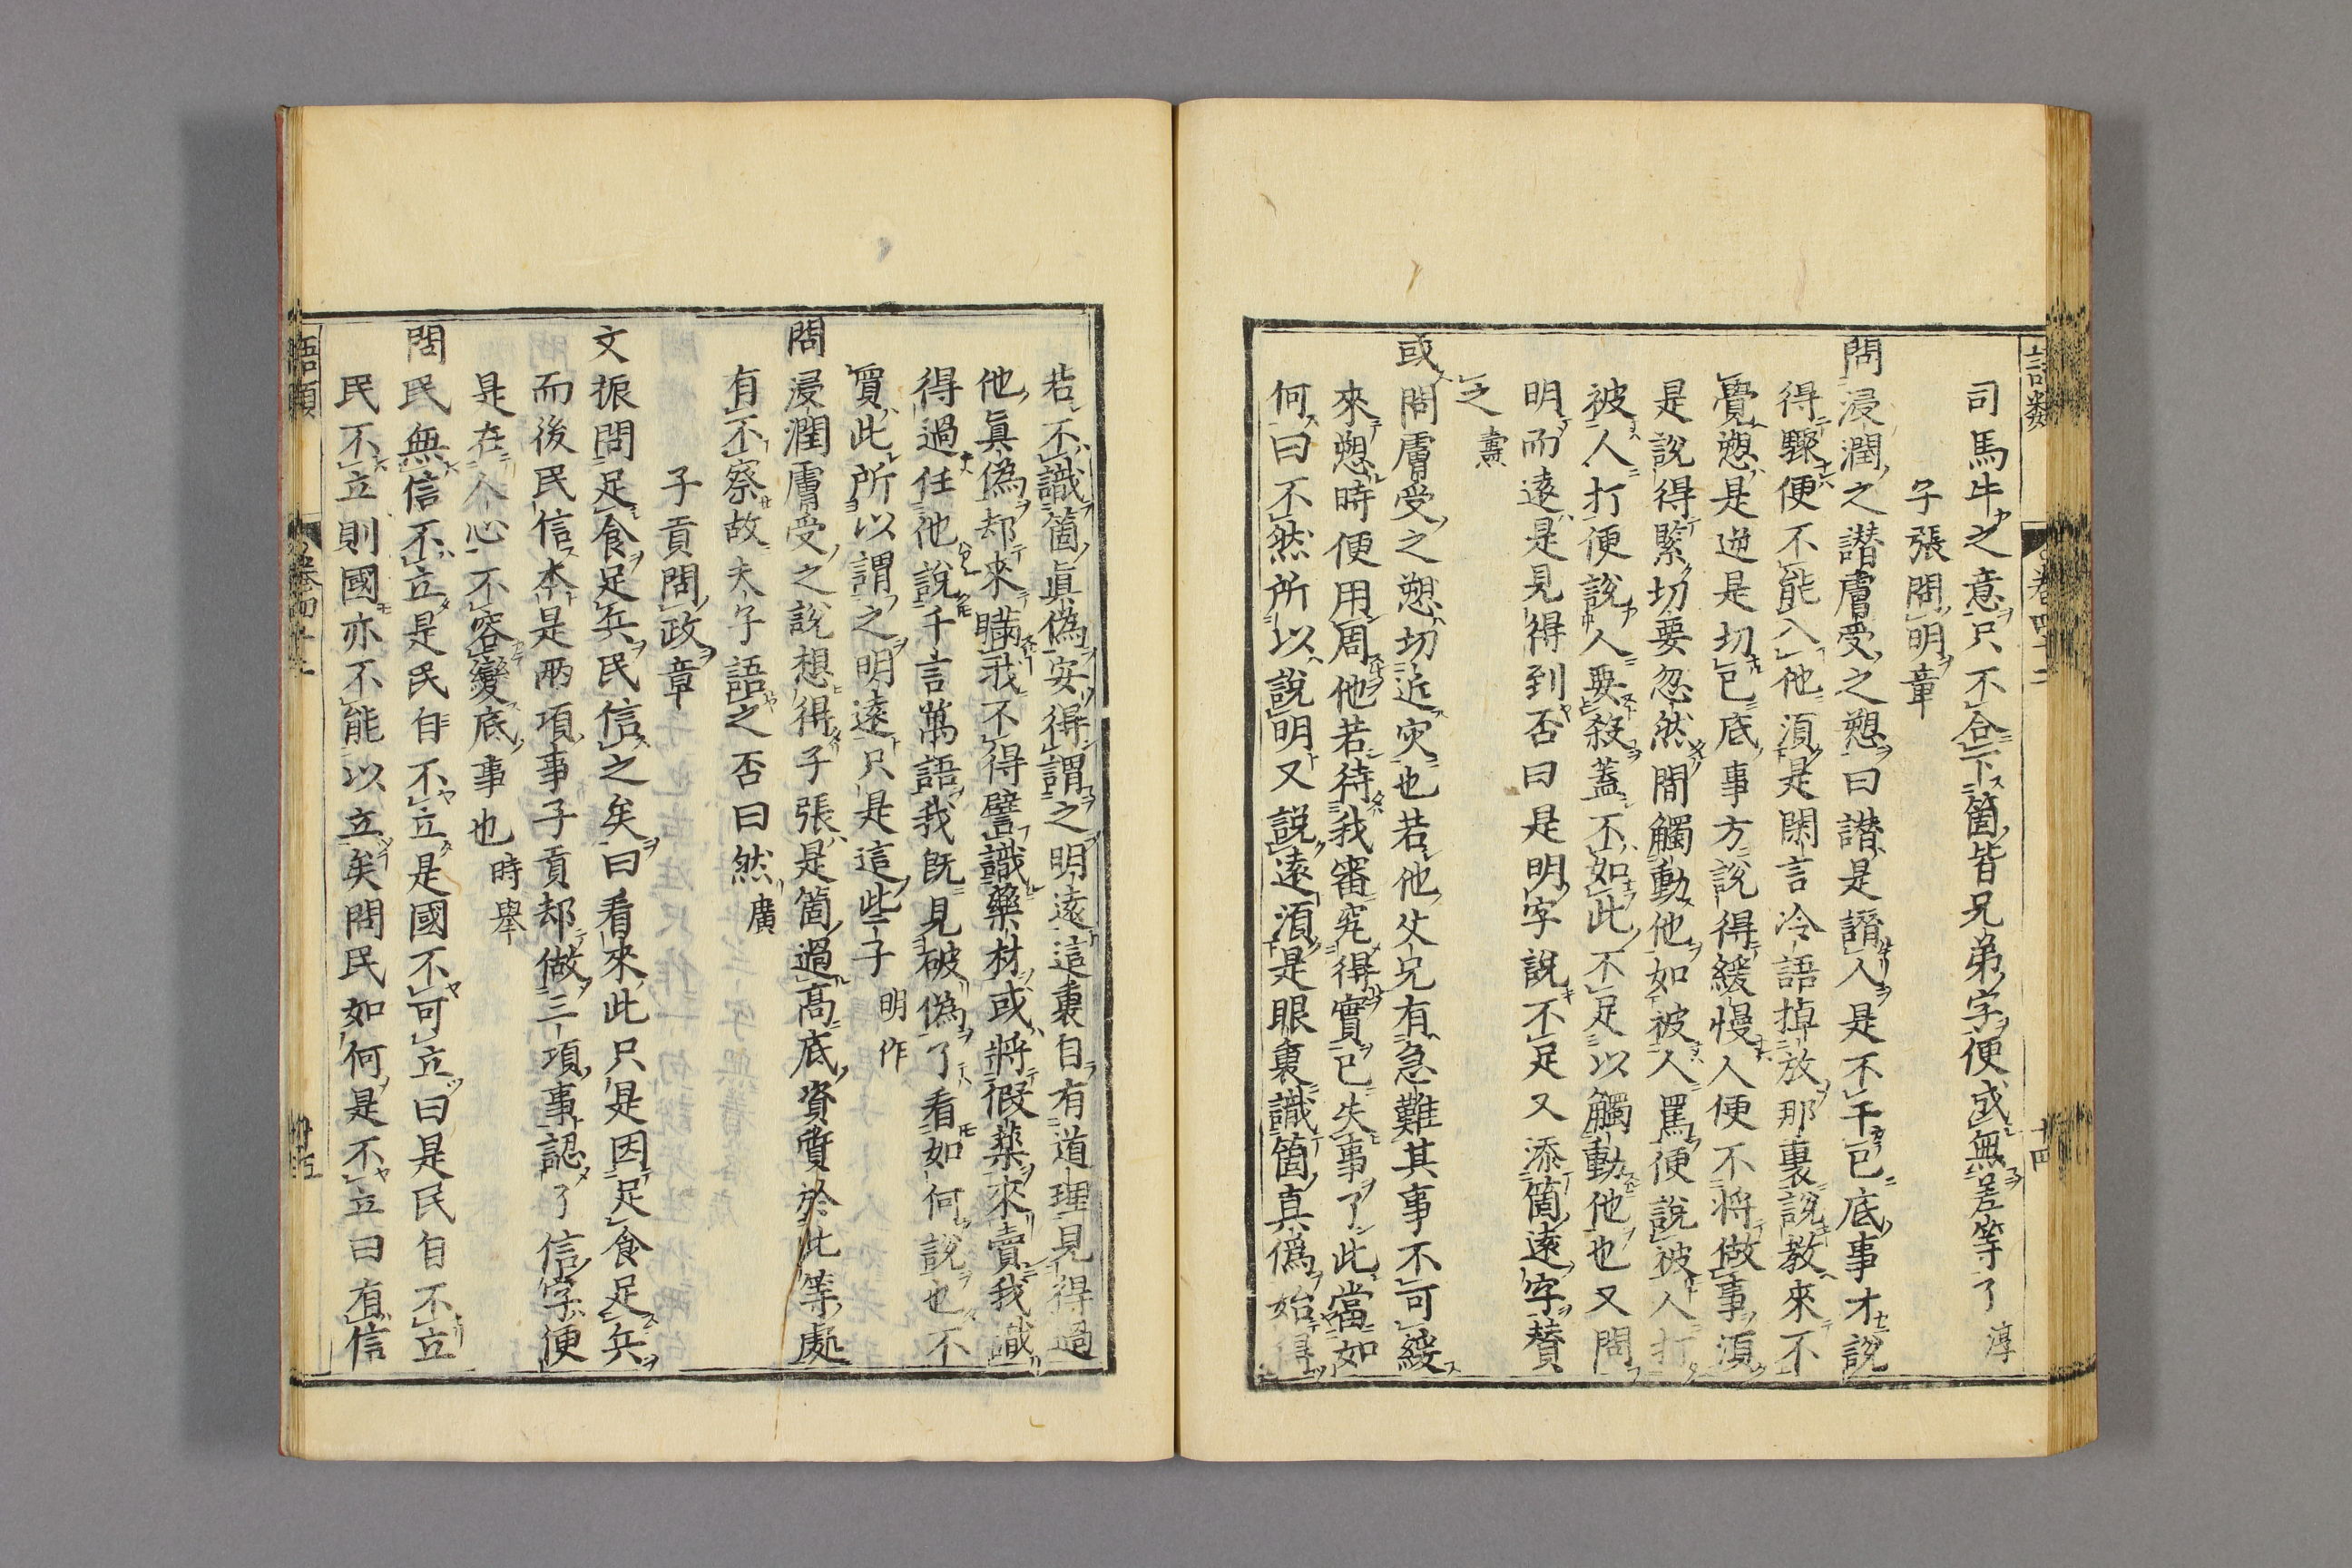 語類 卷四十二 十四
司馬牛之意只不合下箇皆兄弟字便成無差等了 淳
子張問明章
問浸潤之譖膚受之愬曰譖是譖人是不干己底事才說
得驟便不能入他須是閑言冷語掉放那裏說教來不
覺愬是逆是切己底事方說得緩慢人便不將做事須
是說得緊切要忽然間觸動他如被人罵便說被人打
被人打便說人要殺蓋不如此不足以觸動他也又問
明而遠是見得到否曰是明字說不足又添箇遠字賛
之 燾
或問膚受之愬切近灾也若他父兄有急難其事不可緩
來愬時便用周他若待我審究得實已失事了此當如
何曰不然所以說明又說遠須是眼裏識箇真偽始得
若不識箇眞偽安得謂之明遠這裏自有道理見得過
他眞偽却來瞞我不得譬識藥材或將假藥來賣我識
得過任他說千言萬語我旣見破偽了看如何說也不
買此所以謂之明遠只是這些子 明作
問浸潤膚受之說想得子張是箇過高底資質於此等處
有不察故夫子語之否曰然 廣
子貢問政章
文振問足食足兵民信之矣曰看來此只是因足食足兵
而後民信本是兩項事子貢却做三項事認了信字便
是在人心不容變底事也 時舉
問民無信不立是民自不立是國不可立曰是民自不立
民不立則國亦不能以立矣問民如何是不立曰有信
語類 卷四十二 十五